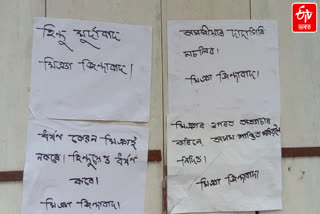 হিন্দু মুৰ্দাবাদ
মিঞা জিন্দাবাদ।
ধৰ্ষণ কেৱল মিঞাই
নকৰে। হিন্দুৱেও ধৰ্ষণ
কৰে।
মিঞা জিন্দাবাদ।
অসমীয়াৰ দাদাগিৰি
নচলিব।
মিঞা জিন্দাবাদ।
মিঞাৰ ওপৰত অত্যাচাৰ
কৰিলে, অসম
মিঞা জিন্দাবাদ।
ETV
ভাৰত